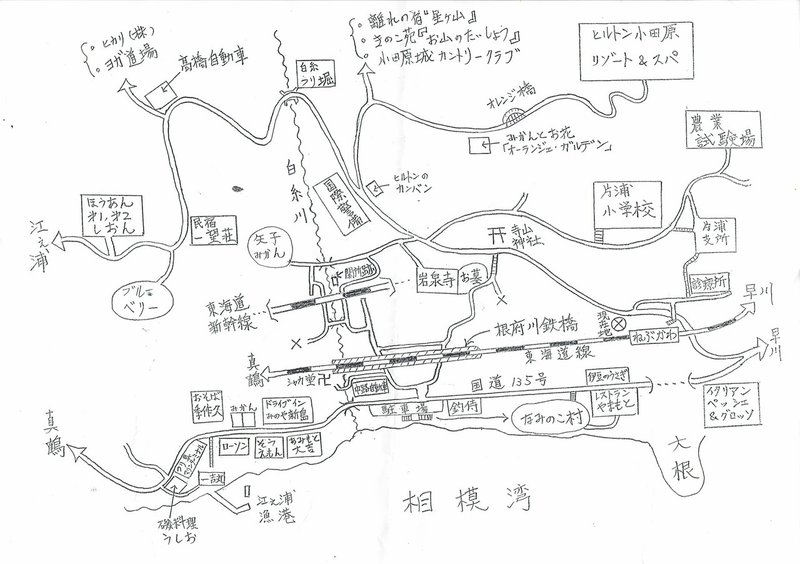 。ヒカリ(株)
。ヨガ道場
高橋自動車
白糸
つり堀
。離れの宿"星ヶ山"
。きのこ苑『お山のたいしょう』
。小田原城カントリークラブ
ヒルトン小田原
リゾート&スパ
オレンジ橋
みかんとお花
「オーランジェ・ガルデン」
農業
試験場
白糸川
国際警備
ヒルトンの
カンバン
片浦
小学校
ほうあん
第1,第2
しおん
民宿
一望荘
江之浦
矢子
みかん
寺山
神社
片浦
支所
関所跡
岩泉寺
お墓
診療所
ブルー
ベリー
東海道
新幹線
早川
根府川鉄橋
現在地
ねぶかわ
東海道線
早川
真鶴
シャカ堂
国道135号
伊豆のうさぎ
レストラン
やまもと
イタリアン
ペッシェ
&グロッソ
おそば
季作久
みかん
ドライブイン
みのや新島
駐車場
釣侍
なみのこ村
真鶴
ローソン
そう
えもん
あみもと
大吉
大根
磯料理
うしお
江之浦
漁港
相模湾